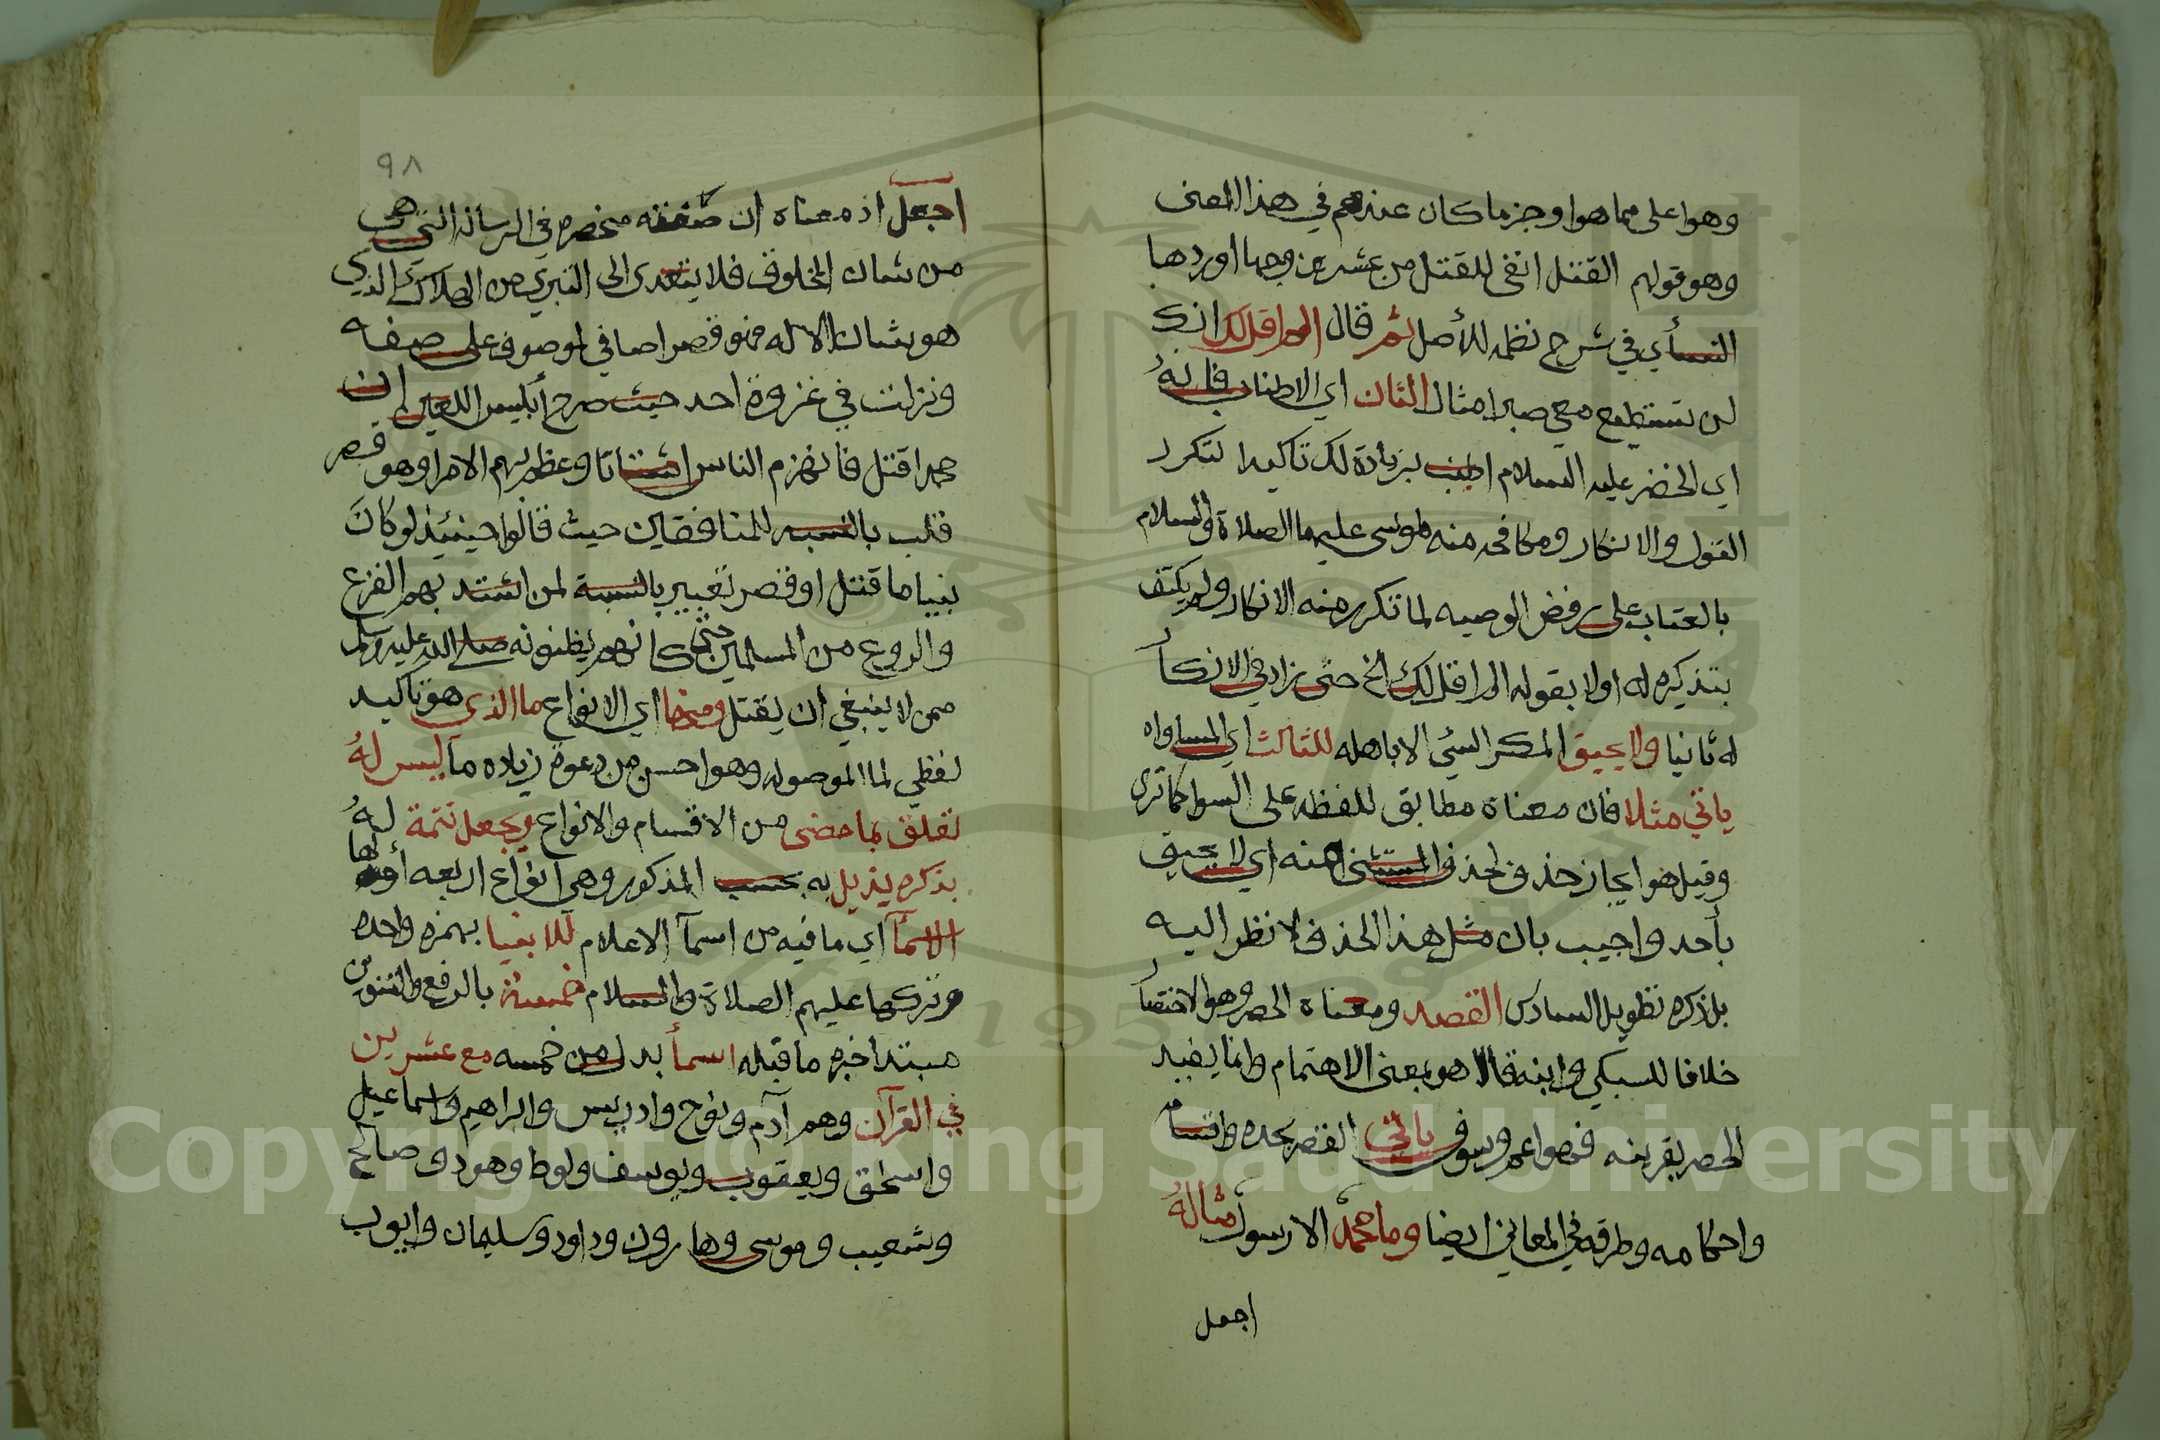 وهو اعلى مما هو اوجز ما كان عندهم في هذا المعنى
وهو قولهم القتل انفى للقتل من عشرين وجها اوردها
النسأي في شرح نظمه للأصل ثم قال الم اقل لك انك
لن تستطيع معي صبرا مثال الثان اي الاطناب فإنهُ
اي الخضر عليه السلام اطنب بزيادة لك تاكيدا لتكرر
القول والانكار ومكافحه منه لموسى عليهما الصلاة والسلام
بالعتاب على رفض الوصيه لما تكرر منه الانكار ولم يكتف
بتذكيره له اولا بقوله الم اقل لك الخ حتى زاد في الانكا
له ثانيا ولا يحيق المكر السيئ الا باهله للثالث اي المساواه
ياتي مثلا فان معناه مطابق للفظه على السوا كما ترى
وقيل هو ايجاز حذف لحذف المستثنى منه اي لا يحيق
بأحد واجيب بان مثل هذا الحذف لا نظر اليه
بل ذكره تطويل السادس القصر ومعناه الحصر وهو الاختصا
خلافا للسبكي وابنه قالا هو بمعنى الاهتمام وانما يفيد
الحصر بقرينه فهو اعم وسوف ياتي القصر بحده واقسامه
واحكامه وطرقه في المعاني ايضا وما محمد الا رسول مثالهُ
اجعل
٩٨
اجعل اذ معناه ان صفته منحصره في الرسالة التي هي
من شان المخلوف فلا يتعدى الى التبري من الهلاك الذي
هو شان الاله فهو قصر اضافي لموصوف على صفه
ونزلت في غزوة احد حيث صرح أبليس اللعين ان
محمدا قتل فأنهزم الناس اشتاتا وعظم بهم الامر اوهو قصر
قلب بالنسبه للمنافقين حيث قالوا حينئيذ لو كانَ
نبيا ما قتل او قصر تعيين بالنسبة لمن اشتد بهم الفزع
والروع من المسلمين حتى كانهم يظنونه صلى الله عليه وسلم
ممن لا ينبغي ان يقتل ومنها اي الانواع ما الذي هو تاكيد
لفظي لما الموصوله وهو احسن من دعوة زياده ما ليس لهُ
تعلق بما مضى من الاقسام والانواع ويجعل تتمة لهُ
بذكره يذيل به بحسب المذكور وهي انواع اربعه أولها
الاسمآ اي ما فيه من اسمآ الاعلام للانبيا بهمزه واحده
وتركها عليهم الصلاة والسلام خمسةٌ بالرفع والتنوين
مبتدا خبره ما قبله اسمأ بدل من خمسه مع عشرين
في القرآن وهم آدم ونوح وادريس وابراهيم واسماعيل
واسحق ويعقوب ويوسف ولوط وهود وصالح
وشعيب وموسى وهارون وداود وسليمان وايوب
Copyright © King Saud University